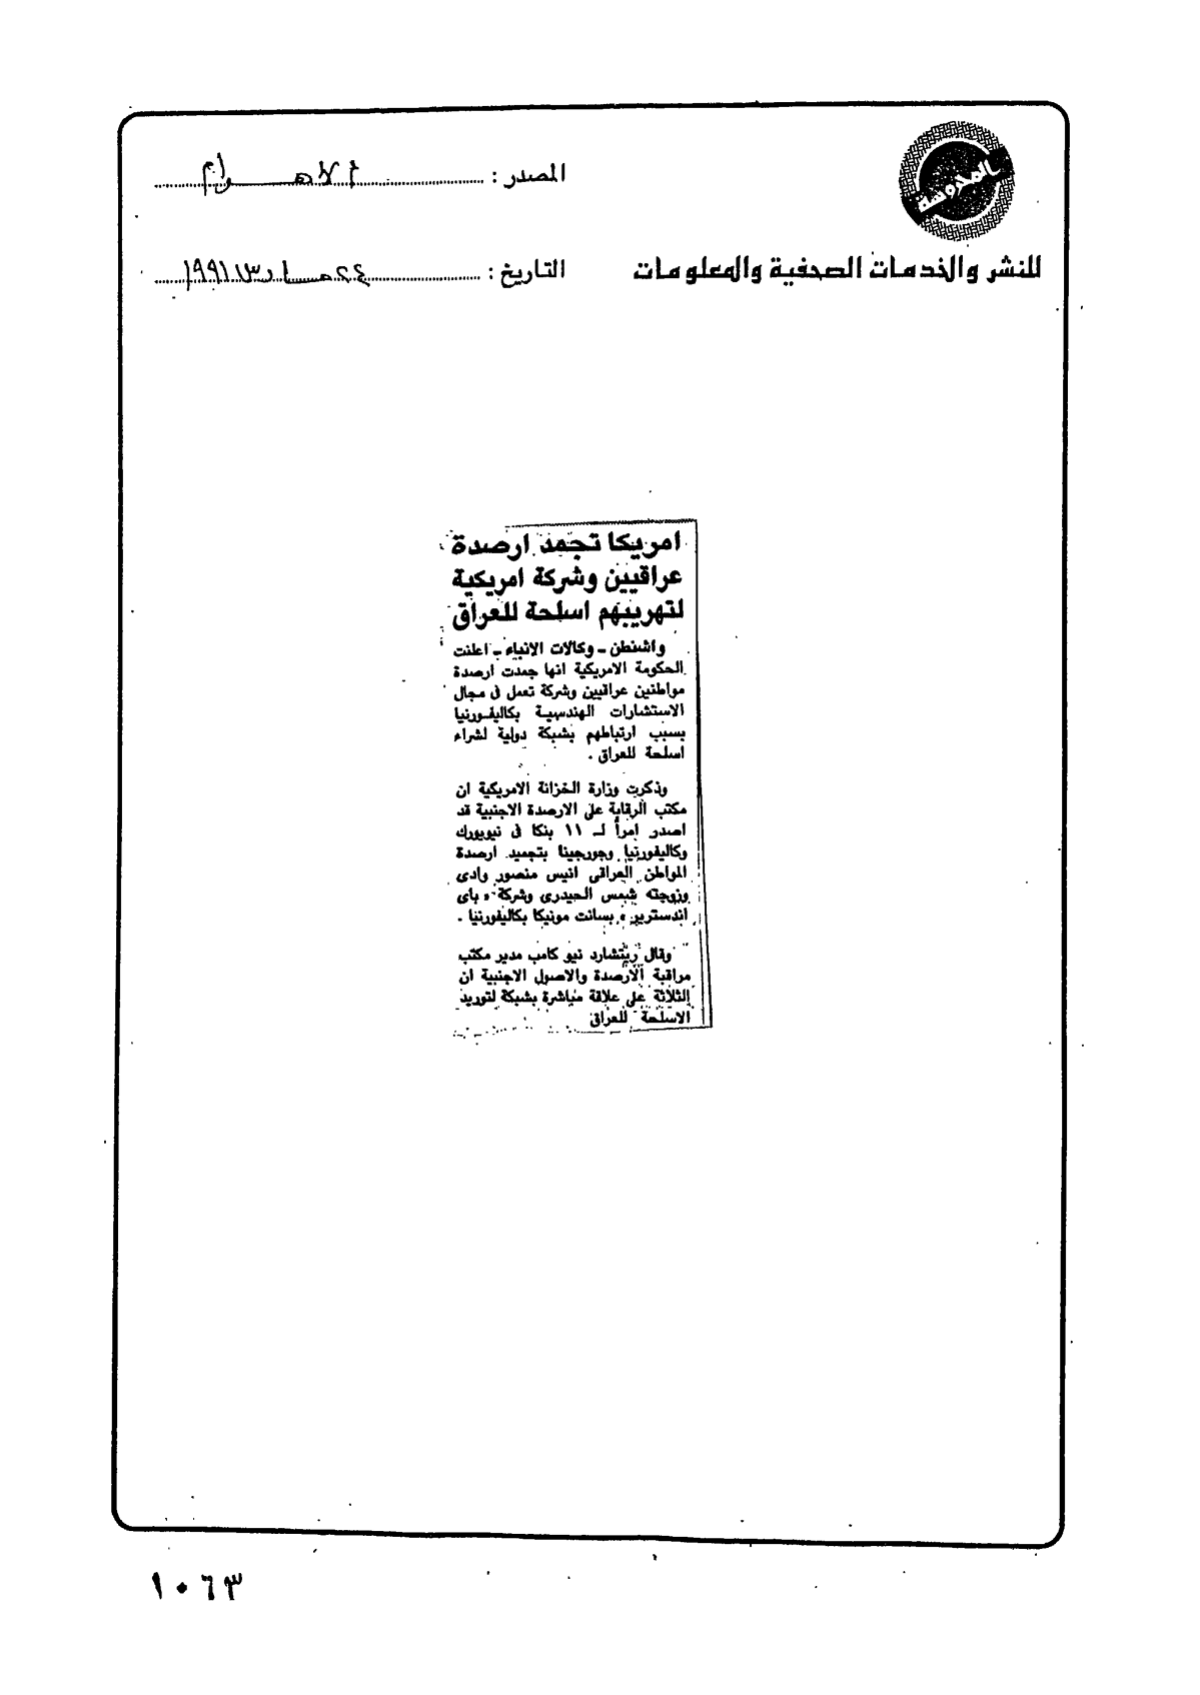 المحروسة
المصدر : الأهرام
للنشر والخدمات الصحفية والمعلومات
التاريخ : ٢٤ مارس ١٩٩١
امريكا تجمد ارصدة
عراقيين وشركة امريكية
لتهريبهم اسلحة للعراق
واشنطن ـ وكالات الانباء ـ اعلنت
الحكومة الامريكية انها جمدت ارصدة
مواطنين عراقيين وشركة تعمل فى مجال
الاستشارات الهندسية بكاليفورنيا
بسبب ارتباطهم بشبكة دولية لشراء
اسلحة للعراق .
وذكرت وزارة الخزانة الامريكية ان
مكتب الرقابة على الارصدة الاجنبية قد
اصدر امرأ لـ ١١ بنكا فى نيويورك
وكاليفورنيا وجورجينا بتجميد ارصدة
المواطن العراقى انيس منصور وادى
وزوجته شمس الحيدرى وشركة « باى
اندستريز » بسانت مونيكا بكاليفورنيا .
وقال ريتشارد نيو كامب مدير مكتب
مراقبة الارصدة والاصول الاجنبية ان
الثلاثة على علاقة مباشرة بشبكة لتوريد
الاسلحة للعراق
١٠٦٣